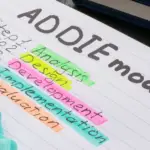 ADDIE mod
Analysis
Design
Development
Implementation
valuation